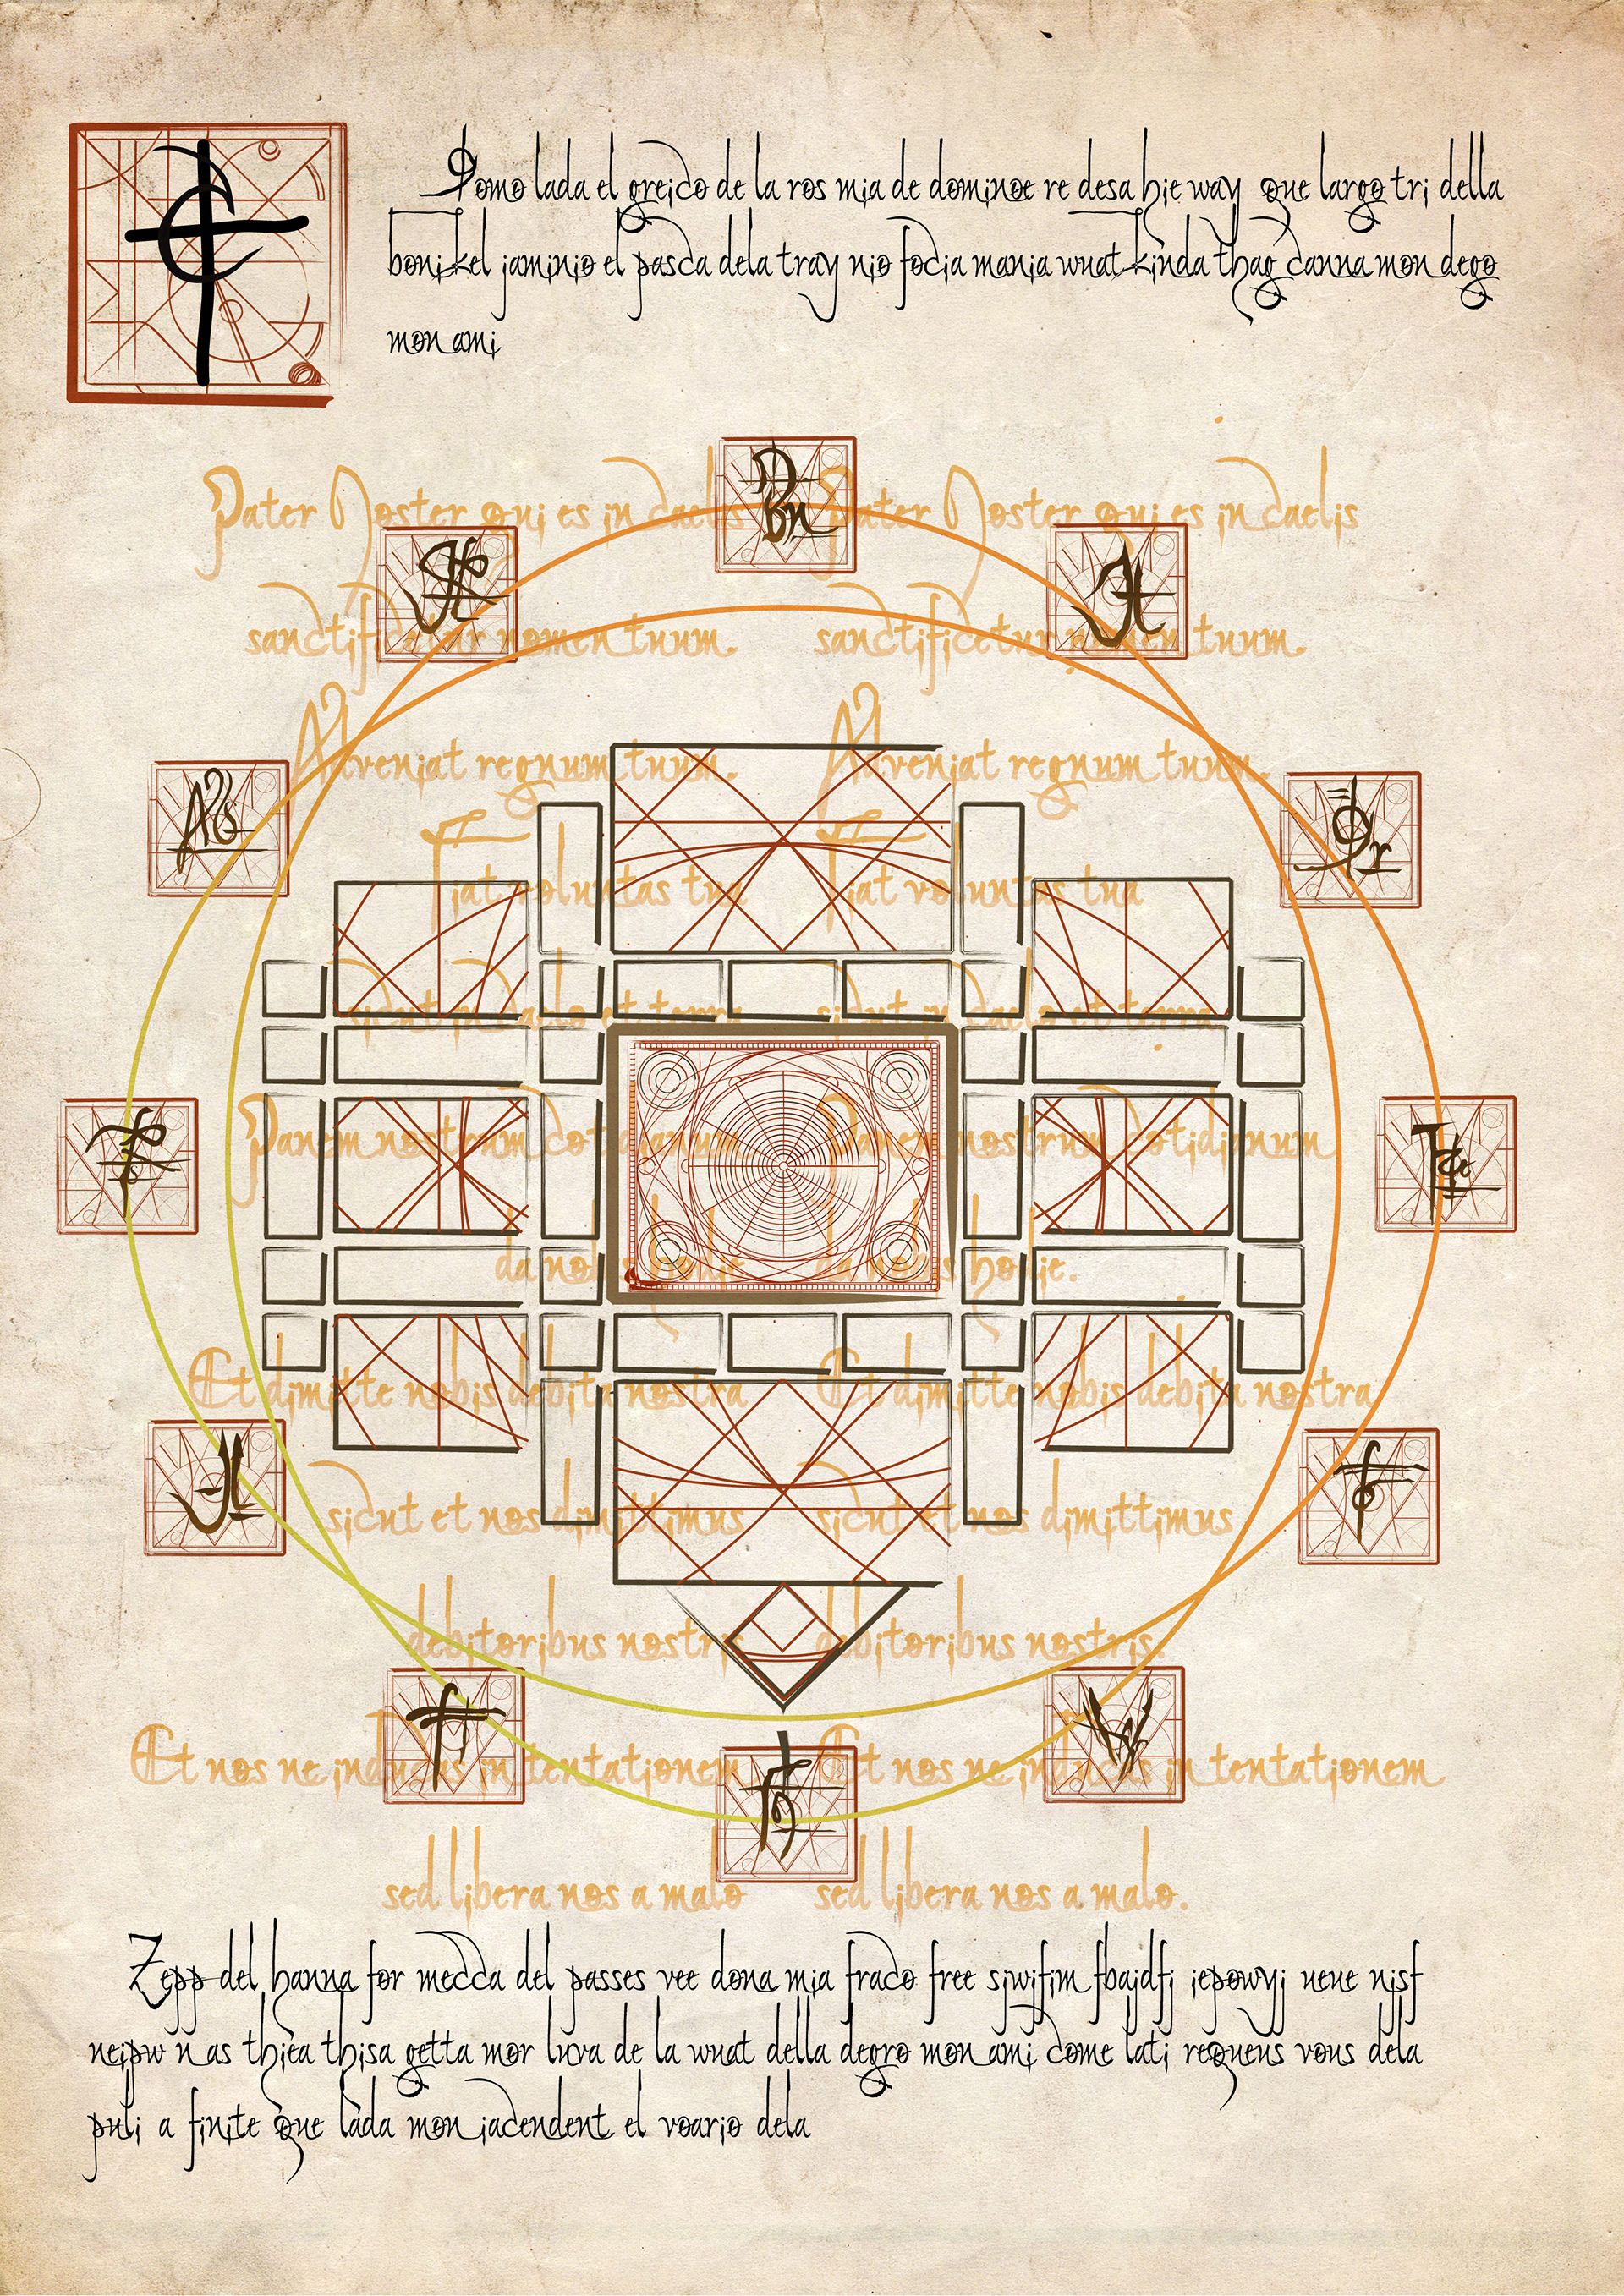 Domo lada el greico de la ros mia de dominoe re desa hie way que largo tri della
bonikel jaminio el pasca dela tray nio focia mania wuat kinda thag canna mon dego
mon ami
Pater Noster qui es in caelis Pater Noster qui es in caelis
nomen tuum. sanctificetur nomen tuum.
Adveniat regnum tuum. Adveniat regnum tuum.
Fiat voluntas tua Fiat voluntas tua
sicut in caelo et terra sicut in caelo et terra
Panem nostrum cotidianum Panem nostrum cotidianum
da nobis hodie da nobis hodie.
Et dimitte nobis debita nostra Et dimitte nobis debita nostra
sicut et nos dimittimus sicut et nos dimittimus
debitoribus nostris debitoribus nostris.
Et nos ne inducas in tentationem Et nos ne inducas in tentationem
sed libera nos a malo sed libera nos a malo.
Zepp del hanna for mecca del passes vee dona mia fraco free sjwifim fbajdfj iepowyj ueue nisf
neipw n as thiea thisa getta mor luva de la wuat della degro mon ami come lati requeus vous dela
puli a finite que lada mon iacendent el voario dela